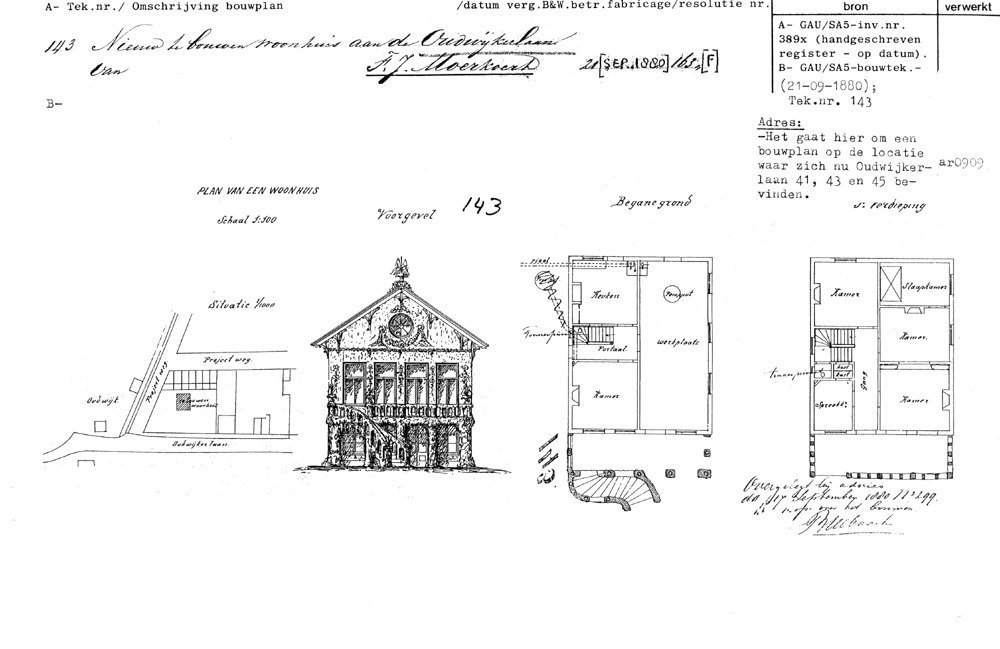 A- Tek.nr./ Omschrijving bouwplan
/datum verg.B&W.betr.fabricage/resolutie nr.
bron
verwerkt
143 Nieuw te bouwen woonhuis aan de Oudwijkerlaan
van F.J. Moerkoert 21 [SEP. 1880] 163 [F]
A- GAU/SA5-inv.nr.
389x (handgeschreven
register - op datum).
B- GAU/SA5-bouwtek.-
(21-09-1880);
Tek.nr. 143
B-
Adres:
-Het gaat hier om een
bouwplan op de locatie
waar zich nu Oudwijker-
laan 41, 43 en 45 be-
vinden.
ar0909
PLAN VAN EEN WOONHUIS
Schaal 1:100
Voorgevel
143
Beganegrond
1e Verdieping
Situatie 1/1000
Project weg
Project weg
Oudwijk
Oudwijkerlaan
riool
Keuken
Portaal
Kamer
werkplaats
Kamer
Slaapkamer
Kamer
Gang
kast
kast
Kamer
Overgelegd bij advies
dd 17 September 1880 No 299